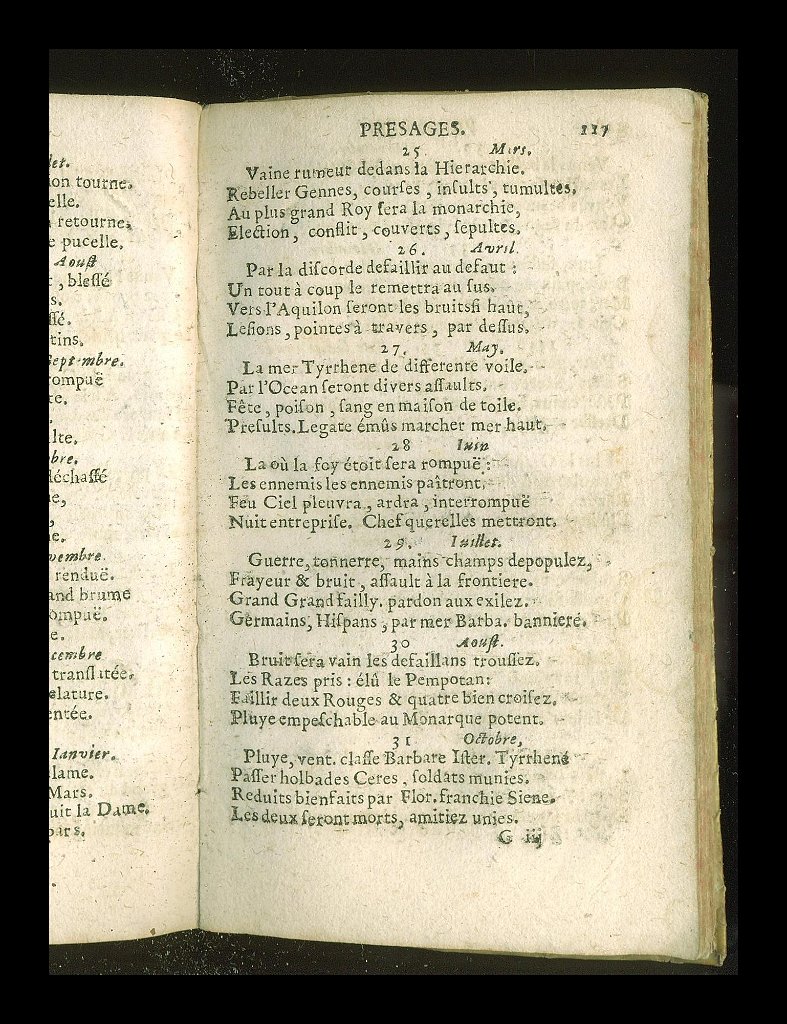 let.
on tourne,
elle.
retourne,
e pucelle,
Aoust
, blessé
s.
ssé.
tins,
Sept mbre.
rompuë
te,
lte.
bre.
déchassé
e,
e.
vembre
renduë.
and brume
ompuë.
e.
cembre
translitée,
elature.
entée.
Ianvier.
lame.
Mars.
uit la Dame.
pars.
PRESAGES. 117
25 Mars.
Vaine rumeur dedans la Hierarchie.
Rebeller Gennes, courses, insults, tumultes.
Au plus grand Roy sera la monarchie,
Election, conflit, couverts, sepultes.
26. Avril
Par la discorde defaillir au defaut :
Un tout à coup le remettra au sus.
Vers l'Aquilon seront les bruits si haut,
Lesions, pointes à travers, par dessus.
27. May.
La mer Tyrrhene de differente voile.
Par l'Ocean seront divers assaults.
Fête, poison, sang en maison de toile.
Presults. Legate émûs marcher mer haut.
28 Iuin
La où la foy étoit sera rompuë :
Les ennemis les ennemis paîtront.
Feu Ciel pleuvra, ardra, interrompuë
Nuit entreprise. Chef querelles mettront.
29. Iuillet.
Guerre, tonnerre, mains champs depopulez,
Frayeur & bruit, assault à la frontiere.
Grand Grand failly. pardon aux exilez.
Germains, Hispans, par mer Barba. banniere.
30 Aoust.
Bruit sera vain les defaillans troussez.
Les Razes pris : élû le Pempotan:
Faillir deux Rouges & quatre bien croisez.
Pluye empeschable au Monarque potent.
31 Octobre,
Pluye, vent. classe Barbare Ister. Tyrrhene
Passer holbades Ceres, soldats munies.
Reduits bienfaits par Flor. franchie Siene.
Les deux seront morts, amitiez unies.
G iij